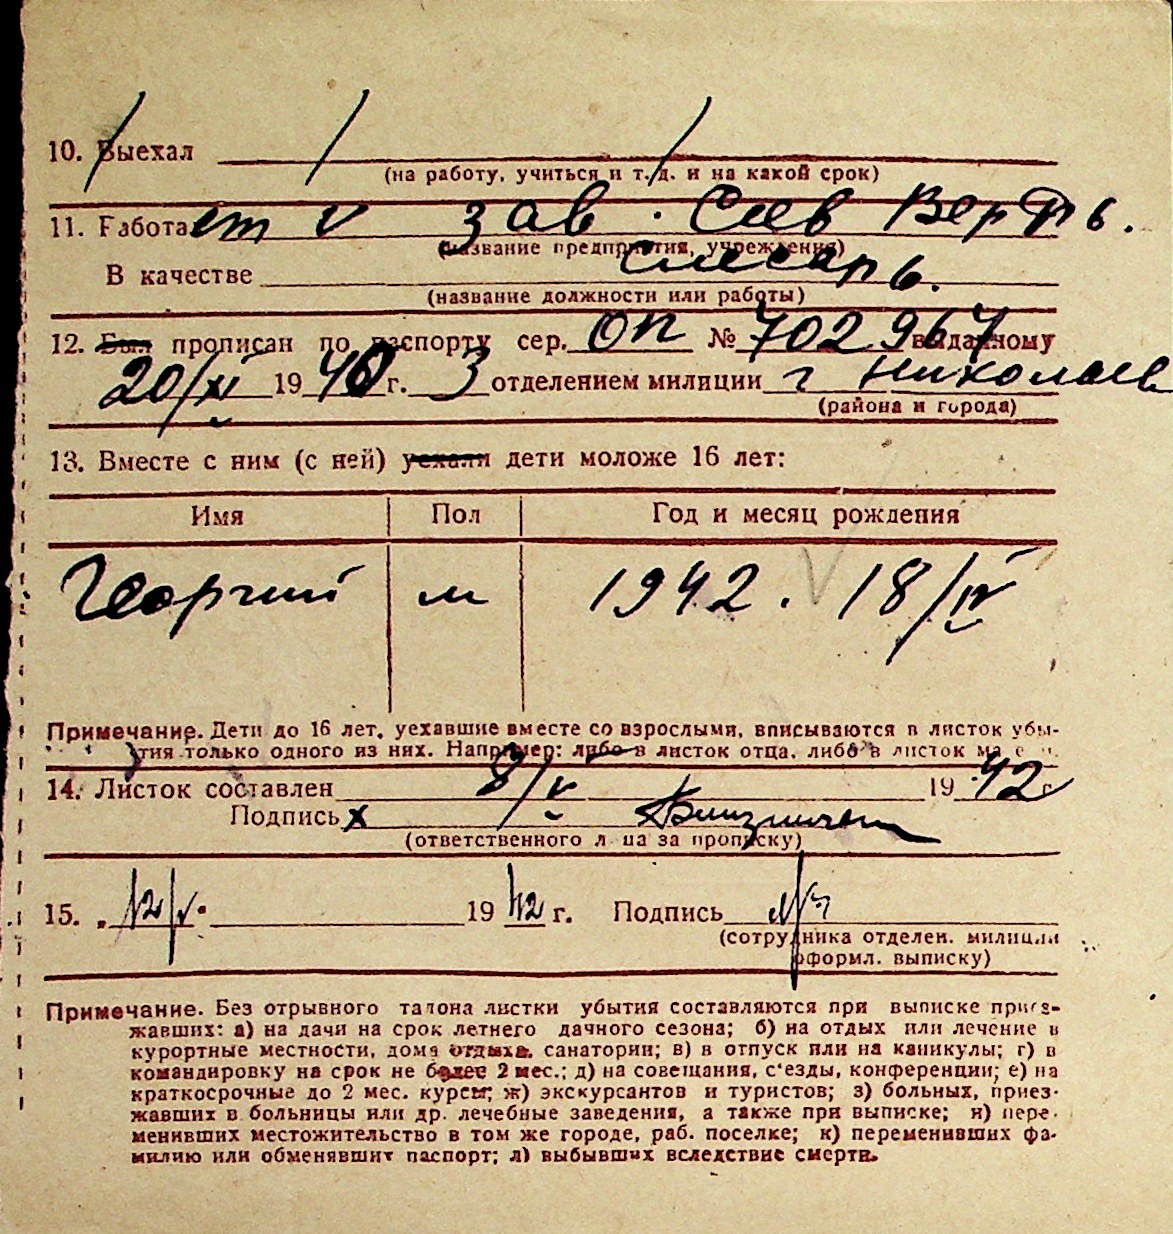 10. Выехал
(на работу, учиться и т. д. и на какой срок)
11. Работает зав. Сев Верфь.
(название предприятия, учреждения)
В качестве слесарь.
(название должности или работы)
12. Был прописан по паспорту сер. ОП № 702967 выданному
20/XI 1940 г. 3 отделением милиции г Николаев
(района и города)
13. Вместе с ним (с ней) уехали дети моложе 16 лет:
Имя Пол Год и месяц рождения
Георгий м 1942. 18/IV
Примечание. Дети до 16 лет, уехавшие вместе со взрослыми, вписываются в листок убы-
тия только одного из них. Например: либо в листок отца, либо в листок
14. Листок составлен 8/V 1942 г.
Подпись х
(ответственного лица за прописку)
15. 12/V. 1942 г. Подпись
(сотрудника отделен. милиции
оформл. выписку)
Примечание. Без отрывного талона листки убытия составляются при выписке приез-
жавших: а) на дачи на срок летнего дачного сезона; б) на отдых или лечение в
курортные местности, дома отдыха, санатории; в) в отпуск или на каникулы; г) в
командировку на срок не более 2 мес.; д) на совещания, с'езды, конференции; е) на
краткосрочные до 2 мес. курсы; ж) экскурсантов и туристов; з) больных, приез-
жавших в больницы или др. лечебные заведения, а также при выписке; и) пере-
менивших местожительство в том же городе, раб. поселке; к) переменивших фа-
милию или обменявших паспорт; л) выбывших вследствие смерти.